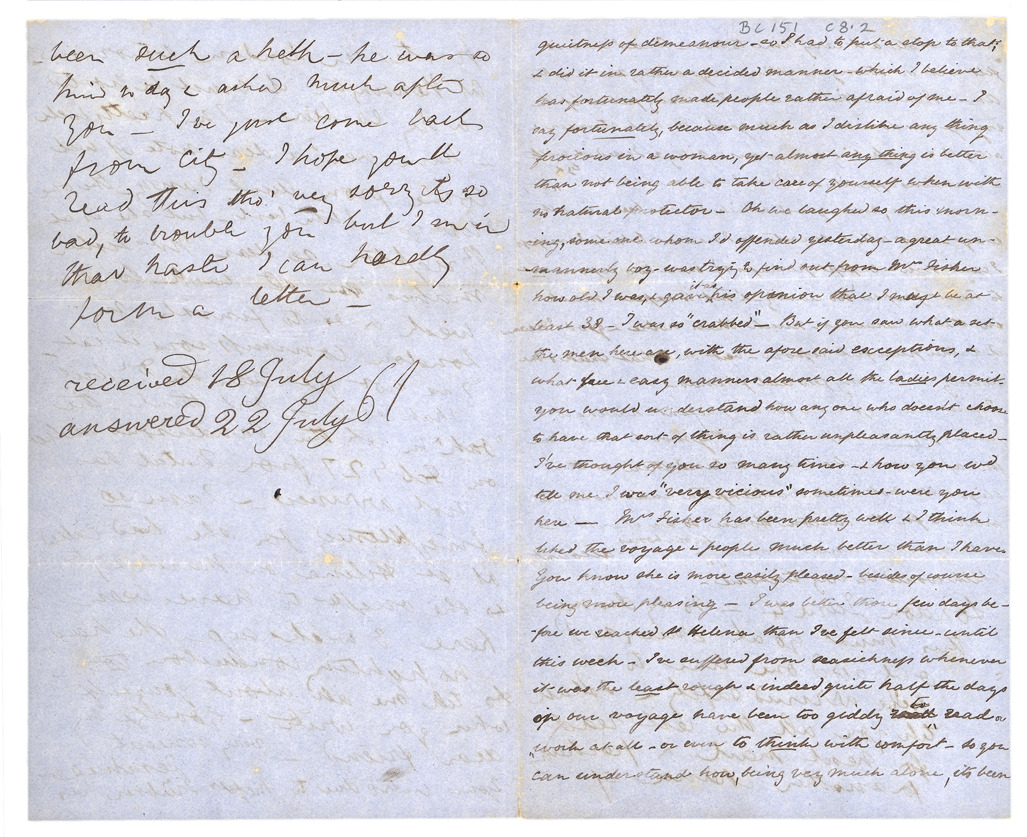 been such a
he was so
kind to day & asked much after
you – I've just come back
from city – I hope you'll
read this tho' very sorry its so
bad, to trouble you but I'm in
that haste I can hardly
form a letter –
received 18 July
answered 22 July
BC 151 C8.2
quietness of demeanour – so I had to put a stop to that,
& did it in rather a decided manner – which I believe
has fortunately made people rather afraid of me – I
say fortunately, because much as I dislike any thing
in a woman, yet almost any thing is better
than not being able to take care of yourself when with
no natural protector – Oh we laughed so this morn-
ing, some one whom I'd offended yesterday – a great un-
mannerly boy – was trying to find out from Mrs Fisher
how old I was, & gave it as his opinion that I might be at
least 38 – I was so "crabbed" – But if you saw what a set
the men here are, with the afore said exceptions, &
what free & easy manners almost all the ladies permit
you would understand how any one who doesn't chose
to have that sort of thing is rather unpleasantly placed –
I've thought of you so many times – & how you wd
tell me I was "very vicious" sometimes – were you
here – Mrs Fisher has been pretty well & I think
liked the voyage & people much better than I have
You know she is more easily pleased – besides of course
being more pleasing – I was better those few days be-
fore we reached St Helena than I've felt since – until
this week – I've suffered from seasickness whenever
it was the least rough & indeed quite half the days
of our voyage have been too giddy to read or
work at all – or even to think "with comfort" – so you
can understand how, being very much alone, its been